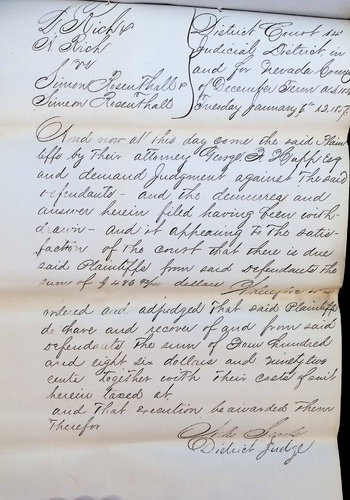 D. Rich &
A. Rich
vs
Simon Rosenthall &
Simeon Rosenthall
District Court
Judicial District in
and for Nevada County
of December Term A.D.
Tuesday January 6th A.D.
And now at this day come the said Plain
tiffs by their attorney George F. Hupp Esq
and demand Judgment against the said
defendants - and the demurrer and
answer herein filed having been with-
drawn - and it appearing to the satis-
faction of the court that there is due
said Plaintiffs from said defendants the
sum of $ 486 dollars
ordered and adjudged that said Plaintiffs
do have and recover of and from said
defendants the sum of Four hundred
and eighty six dollars and ninety two
cents together with their costs of suit
herein taxed at
and that execution be awarded them
therefor
District Judge